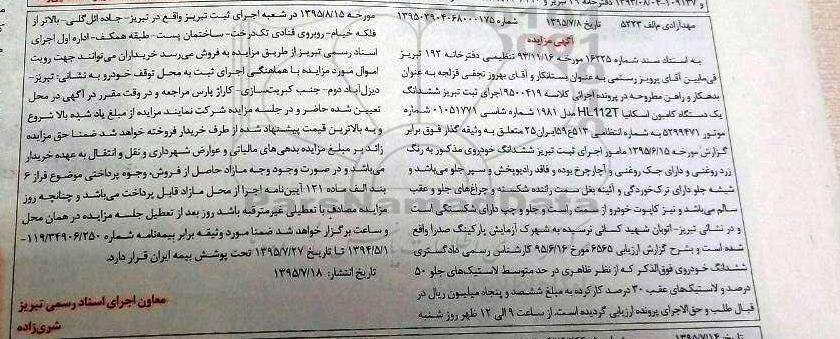 مهدآزادی م‌الف ۵۲۲۳ تاریخ ۱۳۹۵/۷/۸ شماره ۱۳۹۵۰۲۹۰۴۰۶۸۰۰۰۱۷۵
آگهی مزایده
به استناد سند شماره ۱۶۲۲۵ مورخه ۹۳/۱۱/۱۶ تنظیمی دفترخانه ۱۹۲ تبریز
فی‌مابین آقای پرویز رستمی به عنوان بستانکار و آقای بهروز نجفی قزلجه به عنوان
بدهکار و راهن مطروحه در پرونده اجرائی کلاسه ۹۵۰۰۴۱۹ اجرای ثبت تبریز ششدانگ
یک دستگاه کامیون اسکانیا HL112T مدل ۱۹۸۱ شماره شاسی ۰۱۰۵۱۷۷۱ شماره
موتور ۵۲۹۹۴۷۱ به شماره انتظامی ۵۱۳ع۵۹ ایران۲۵ متعلق به وثیقه گذار فوق برابر
گزارش مورخه ۱۳۹۵/۶/۱۵ مامور اجرای ثبت تبریز ششدانگ خودروی مذکور به رنگ
زرد روغنی و دارای جک روغنی و آچارچرخ بوده و فاقد رادیوپخش و سپر جلو می‌باشد و
شیشه جلو دارای ترک‌خوردگی و آئینه بغل سمت راننده شکسته و چراغ‌های جلو و عقب
سالم می‌باشد و نیز کاپوت خودرو از سمت راست و جلو و چپ دارای شکستگی است
و در نشانی تبریز-اتوبان شهید کسائی نرسیده به شهرک آزمایش پارکینگ صدرا واقع
شده است و بشرح گزارش ارزیابی ۶۵۶۵ مورخ ۹۵/۶/۱۶ کارشناس رسمی دادگستری
ششدانگ خودروی فوق‌الذکر که از نظر ظاهری در حد متوسط لاستیک‌های جلو ۵۰
درصد و لاستیک‌های عقب ۳۰ درصد کارکرده به مبلغ ششصد و پنجاه میلیون ریال در
قبال طلب و حق‌الاجرای پرونده ارزیابی گردیده است. از ساعت ۹ الی ۱۲ ظهر روز شنبه
مورخه ۱۳۹۵/۸/۱۵ در شعبه اجرای ثبت تبریز واقع در تبریز- جاده ائل‌گلی- بالاتر از
فلکه خیام- روبروی قنادی تک‌درخت- ساختمان پست- طبقه همکف- اداره اول اجرای
اسناد رسمی تبریز از طریق مزایده به فروش می‌رسد خریداران می‌توانند جهت رویت
اموال مورد مزایده با هماهنگی اجرای ثبت به محل توقف خودرو به نشانی: تبریز-
دیزل‌آباد دوم- جنب کبریت‌سازی- کاراژ پارس مراجعه و در وقت مقرر در آگهی در محل
تعیین شده حاضر و در جلسه مزایده شرکت نمایند مزایده از مبلغ یاد شده بالا شروع
و به بالاترین قیمت پیشنهاد شده از طرف خریدار فروخته خواهد شد ضمنا حق مزایده
زائد بر مبلغ مزایده بدهی‌های مالیاتی و عوارض شهرداری و نقل و انتقال به عهده خریدار
می‌باشد و در صورت وجود وجه مازاد حاصل از فروش، وجوه پرداختی موضوع فراز ۶
بند الف ماده ۱۲۱ آیین‌نامه اجرا از محل مازاد قابل پرداخت می‌باشد و چنانچه روز
مزایده مصادف با تعطیلی غیرمترقبه باشد روز بعد از تعطیل جلسه مزایده در همان محل
و ساعت برگزار خواهد شد ضمنا مورد وثیقه برابر بیمه‌نامه شماره ۱۱۹/۳۴۹۰۶/۲۵۰-
۱۳۹۴/۵/۱ تا تاریخ ۱۳۹۵/۷/۲۷ تحت پوشش بیمه ایران قرار دارد.
تاریخ انتشار: ۱۳۹۵/۷/۱۸
معاون اجرای اسناد رسمی تبریز
شری‌زاده
ParsNamadData